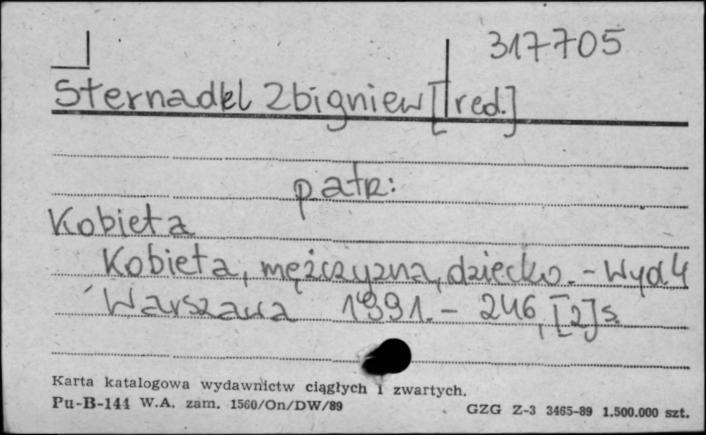 317705
Sternadel Zbigniew [red.]
patrz:
Kobieta
Kobieta, mężczyzna, dziecko. - Wyd 4
Warszawa 1991. - 246, [2] s.
Karta katalogowa wydawnictw ciągłych i zwartych.
Pu-B-144 W.A. zam. 1560/On/DW/89
GZG Z-3 3465-89 1.500.000 szt.